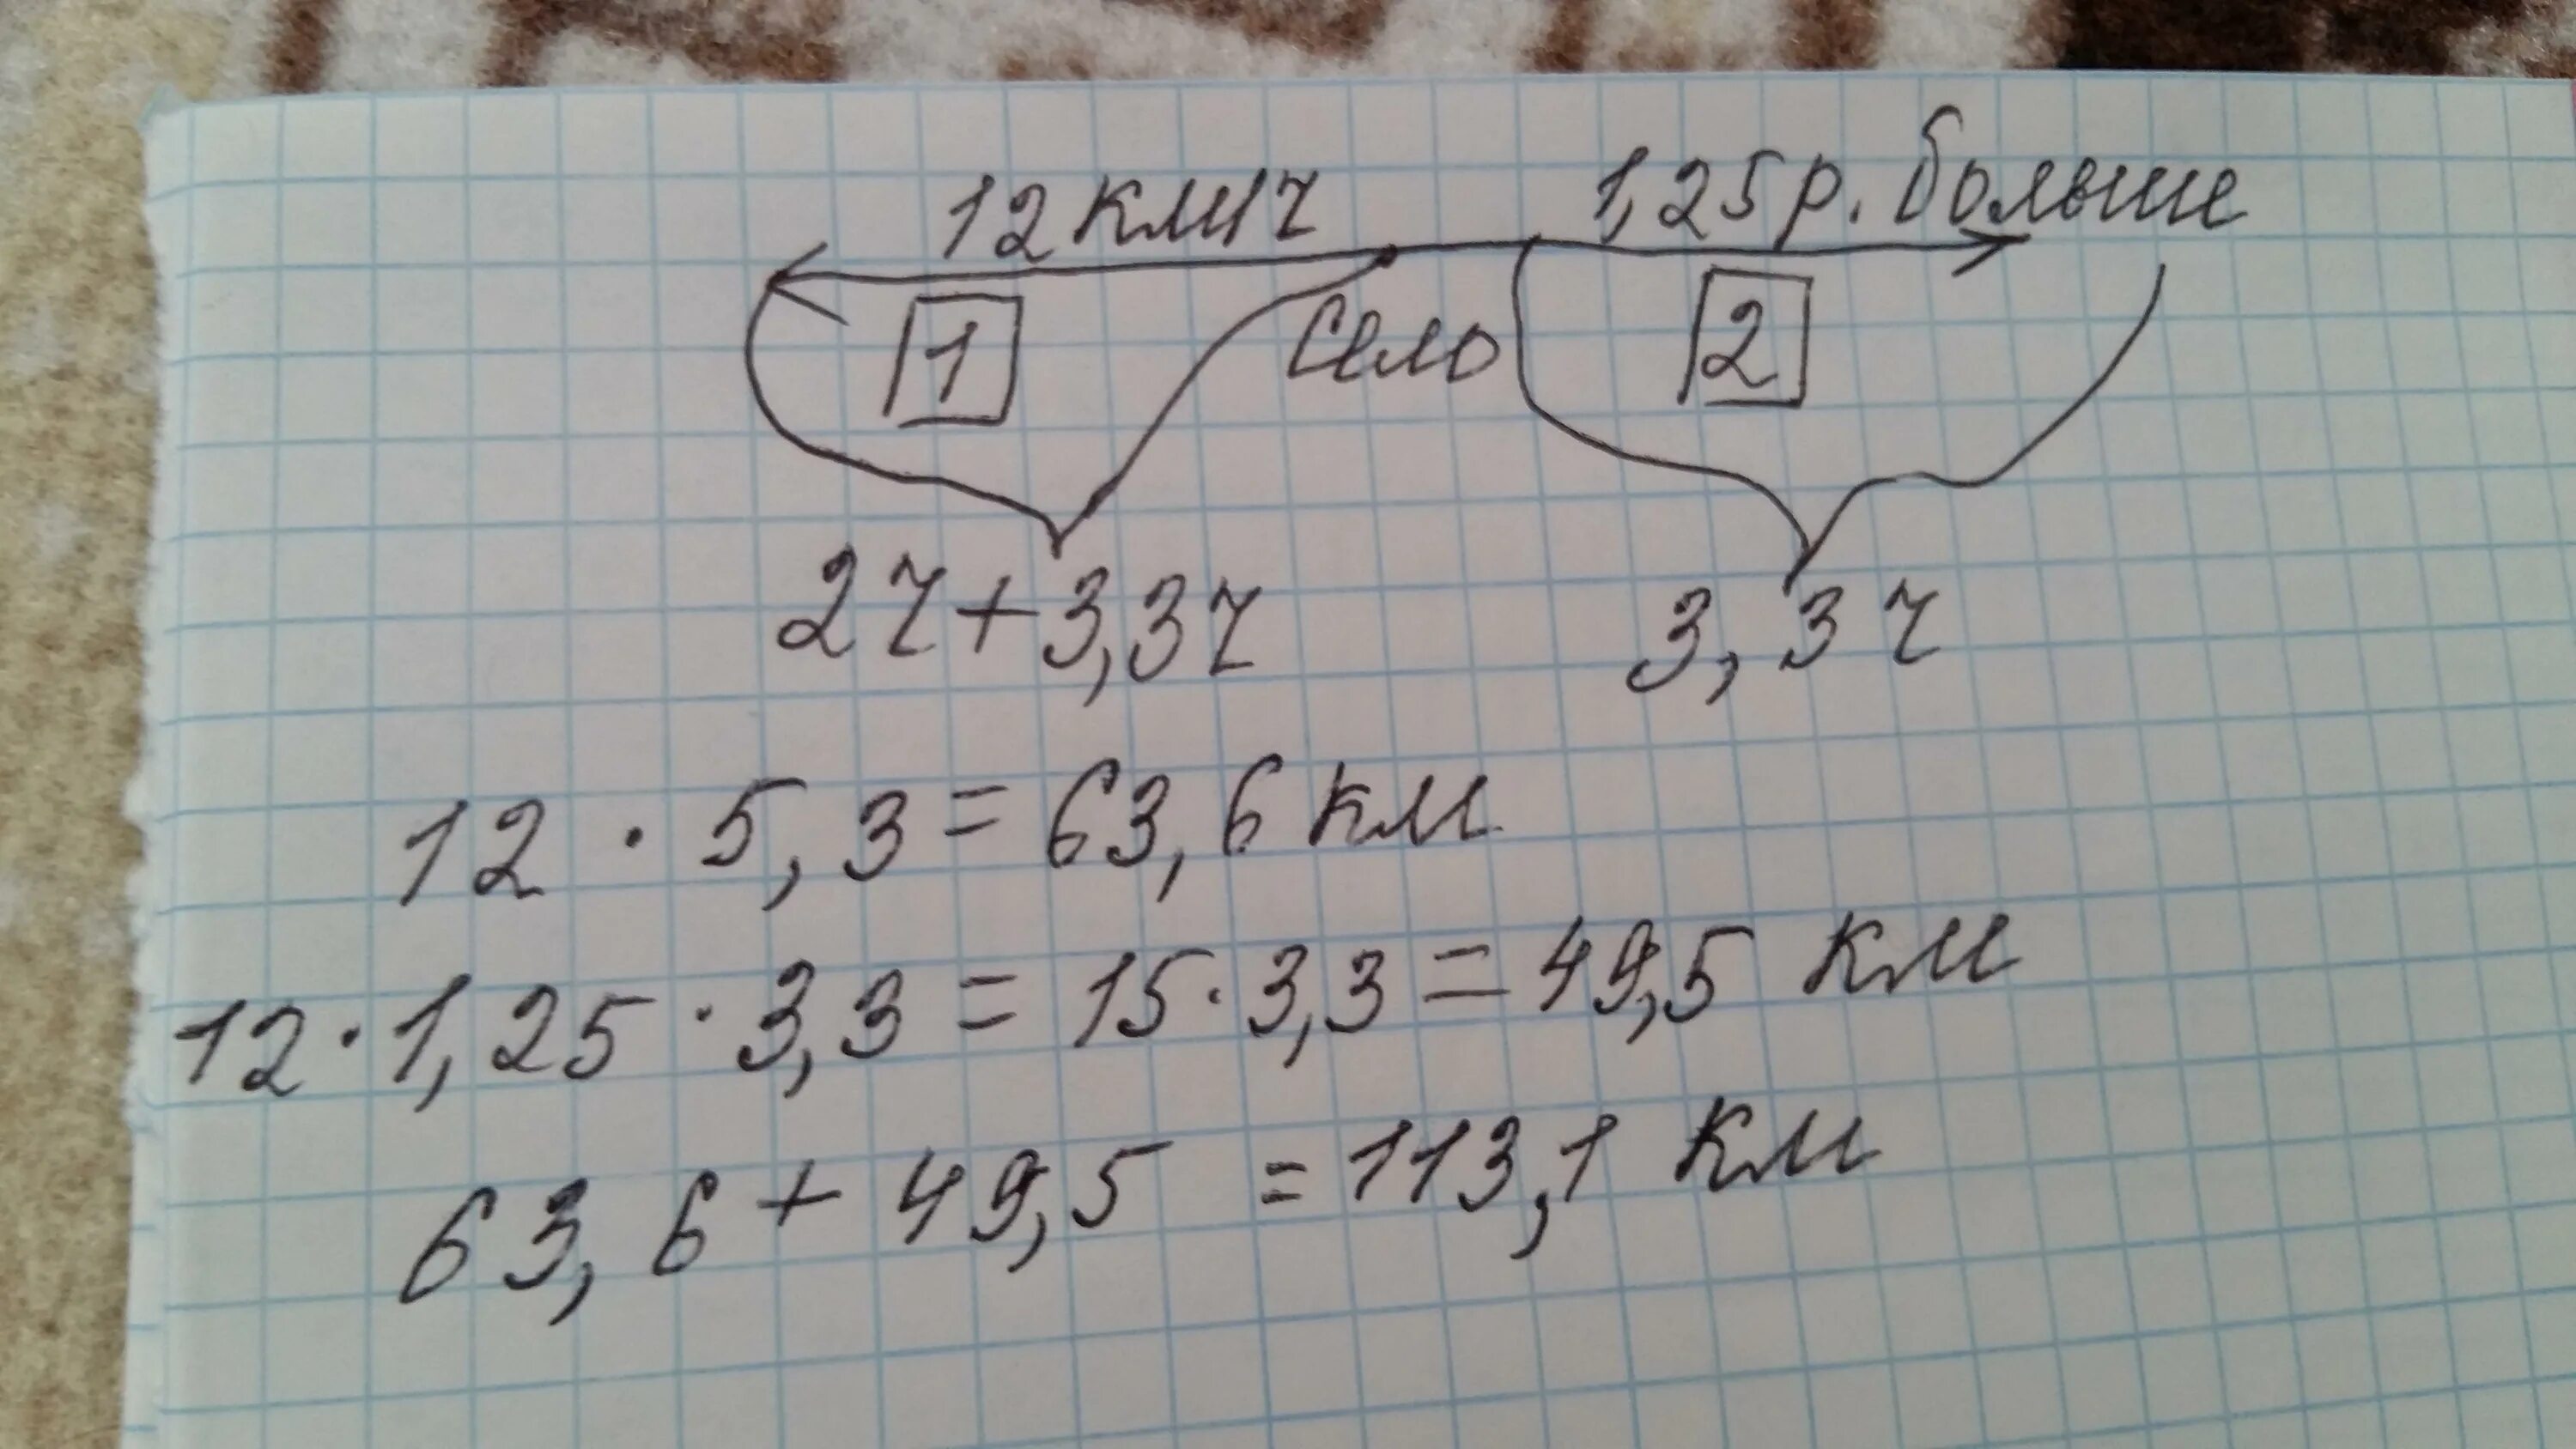 12 км/ч 1,25 р. больше
1 Село 2
2ч+3,3ч 3,3ч
12 · 5,3 = 63,6 км
12 · 1,25 · 3,3 = 15 · 3,3 = 49,5 км
63,6 + 49,5 = 113,1 км